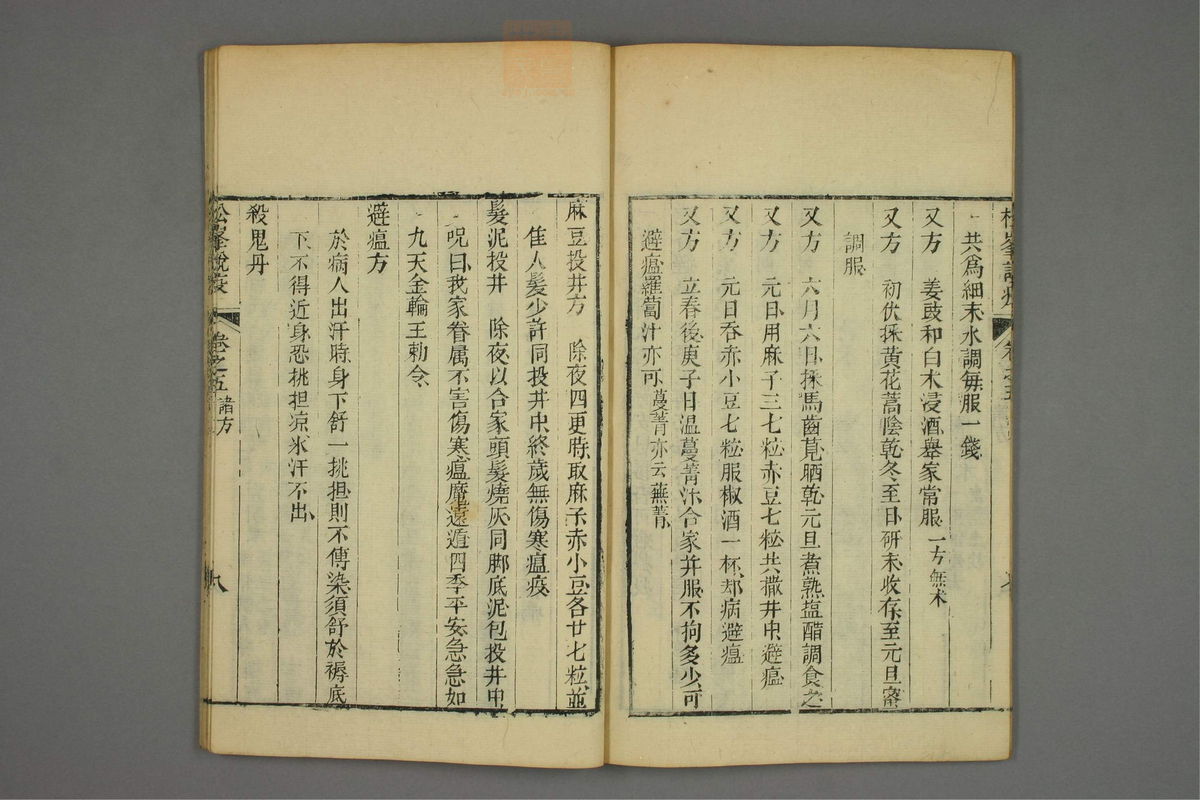 松峯說疫
卷之五
七
共爲細末水調每服一錢
又方 姜豉和白朮浸酒舉家常服 一方無朮
又方 初伏採黃花蒿陰乾冬至日研末收存至元旦蜜
調服
又方 六月六日採馬齒莧晒乾元旦煮熟塩醋調食之
又方 元日用麻子三七粒赤豆七粒共撒井中避瘟
又方 元日吞赤小豆七粒服椒酒一杯却病避瘟
又方 立春後庚子日温蔓菁汁合家并服不拘多少可
避瘟羅蔔汁亦可 蔓菁亦云蕪菁
麻豆投井方 除夜四更時取麻子赤小豆各廿七粒並
隹人髮少許同投井中終歲無傷寒瘟疫
髮泥投井 除夜以合家頭髮燒灰同脚底泥包投井中
呪曰我家眷属不害傷寒瘟魔遠遁四季平安急急如
九天金輪王勅令
避瘟方
於病人出汗時身下舒一挑担則不傳染須舒於褥底
下不得近身恐挑担凉氷汗不出
殺鬼丹
松峯說疫
卷之五 諸方
八